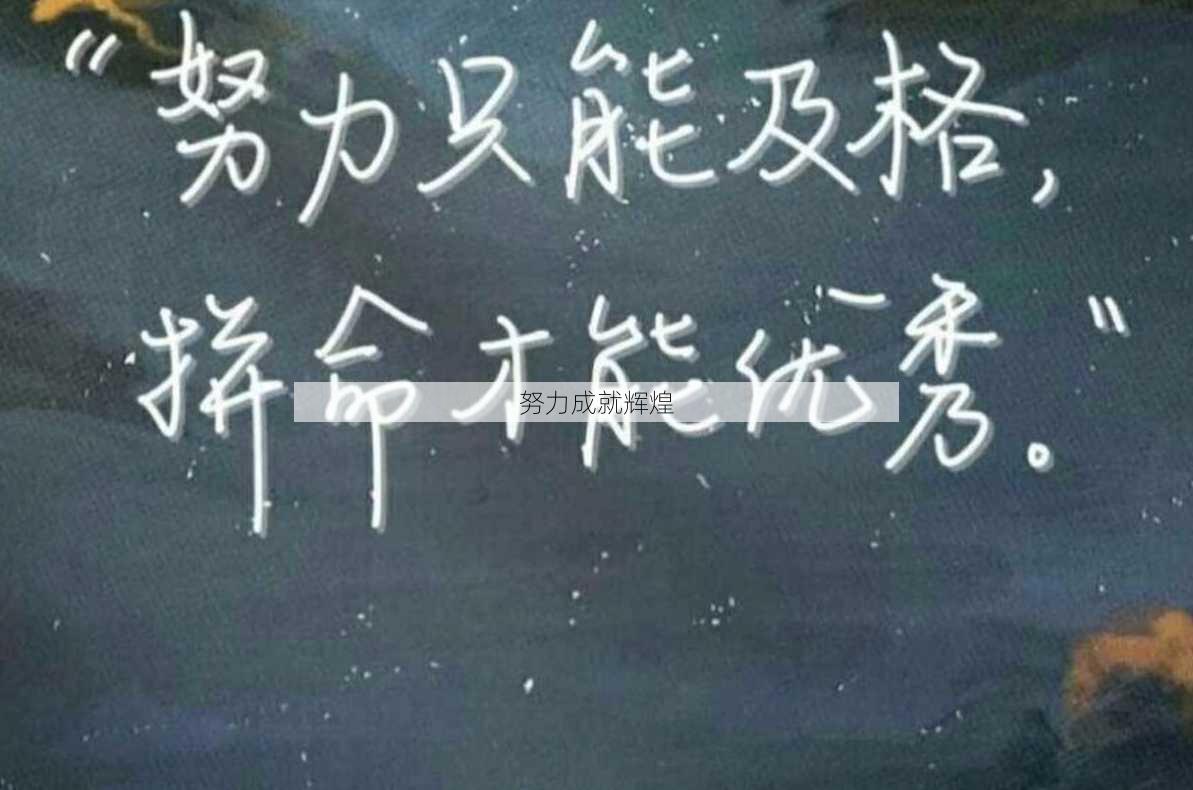 “努力只能及格，
拼命才能优秀。”
努力成就辉煌